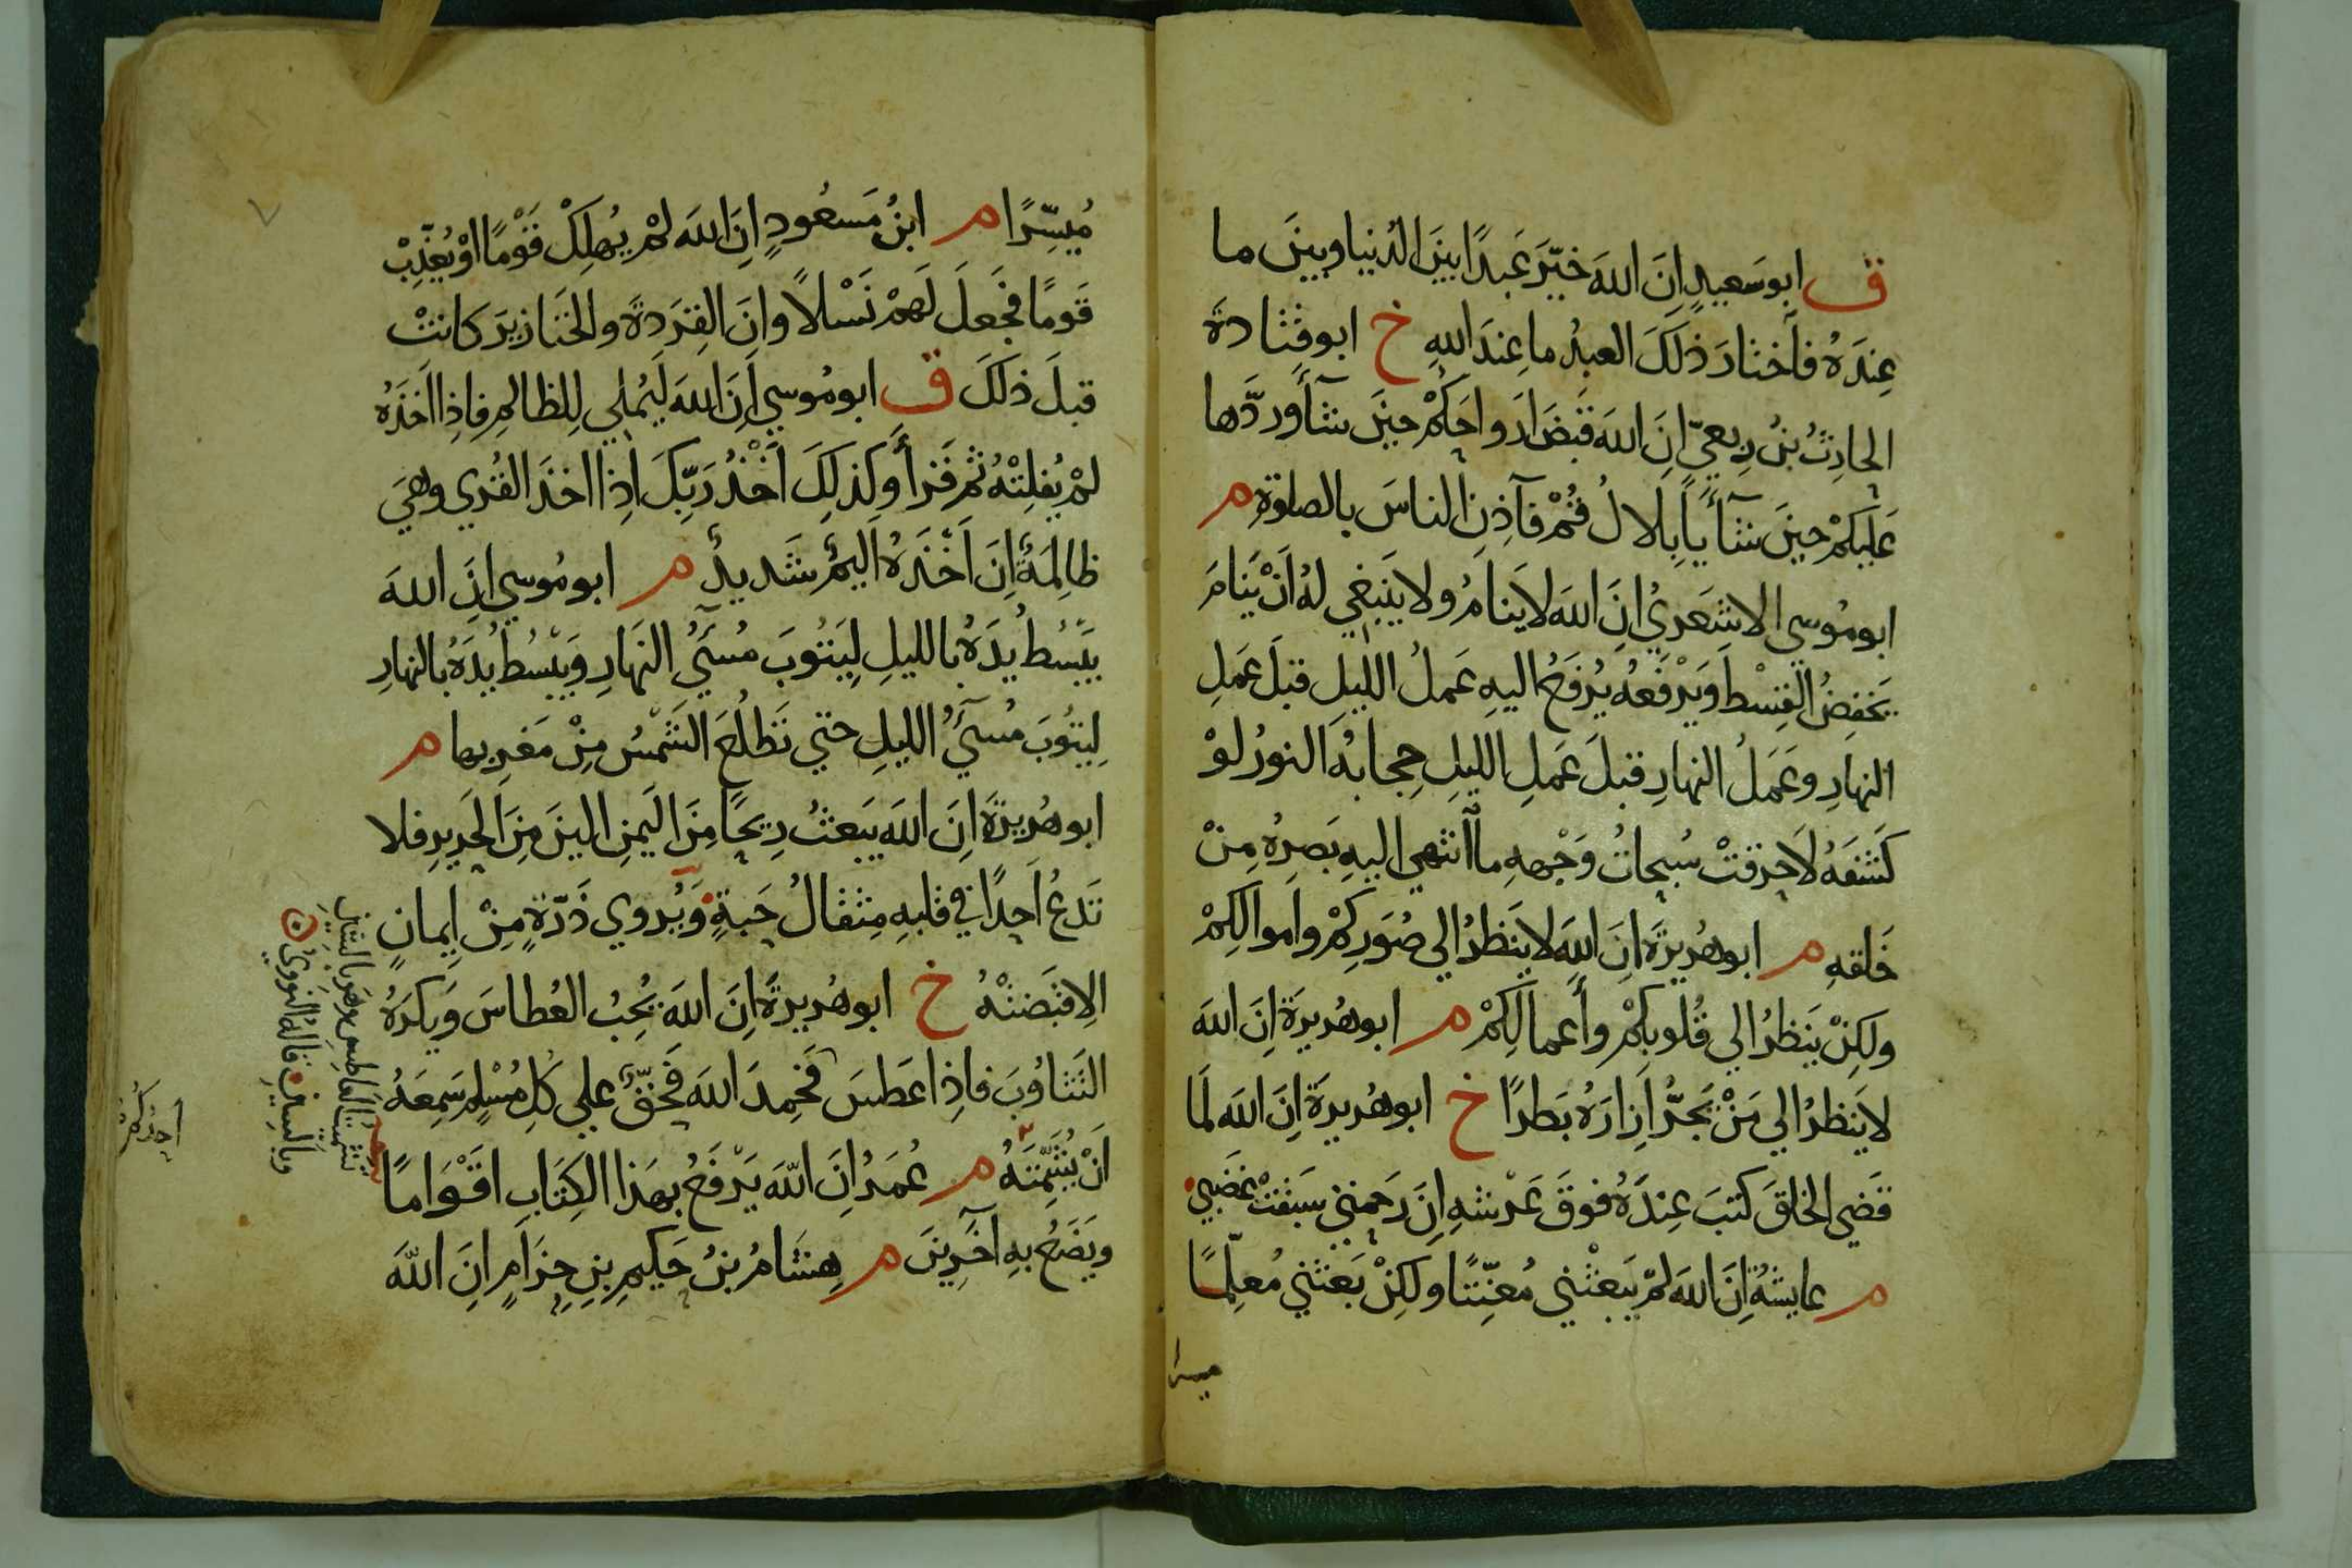 ق ابو سَعيدٍ اِنَّ اللهَ خَيَّرَ عَبدًا بَينَ الدُنيا وبينَ ما
عِندَهُ فاَختارَ ذلكَ العبدُ ما عِندَ اللهِ خ ابو قتادة
الحارثُ بنُ رِبعيّ اِنَّ اللهَ قبَضَ اَرواحَكُمْ حينَ شآءَ وردَّها
عَلَيكُمْ حينَ شآءَ يا بِلالُ قُمْ فآذِنِ الناسَ بالصلوةِ م
ابو مُوسى الاشعَرِيُ اِنَّ اللهَ لا يَنامُ ولا يَنبَغي لهُ اَنْ يَنامَ
يَخفِضُ القِسْطَ وَيَرْفَعُهُ يُرفَعُ اليهِ عَملُ الليلِ قبلَ عَمَلِ
النهارِ وعَمَلُ النهارِ قبلَ عَمَلِ الليلِ حِجابُهُ النورُ لَوْ
كَشَفَهُ لاَحرَقَتْ سُبحاتُ وَجْهِهِ ما اَنتهى اليهِ بَصرُهُ مِنْ
خَلقهِ م ابو هُريرَةَ اِنَّ اللهَ لا يَنظرُ الى صُوَرِكُمْ واَموالِكُمْ
ولكِنْ يَنظرُ الي قُلوبِكُمْ وأَعمالِكُمْ م ابو هُريرَةَ اِنَّ اللهَ
لا يَنظرُ الي مَنْ يَجُرُّ اِزارَهُ بَطرًا خ ابو هُريرَةَ اِنَّ اللهَ لَمّا
قَضي الخلقَ كَتبَ عِندَهُ فوقَ عَرْشهِ اِنَّ رَحمتي سَبقتْ غَضَبي
م عايشةُ اِنَّ اللهَ لَمْ يَبعَثْني مُعَنِّتًا ولكِنْ بَعَثني مُعلِّمًا
ميسرا
٧
مُيَسِّرًا م ابنُ مَسعُودٍ اِنَّ اللهَ لَمْ يُهلِكْ قَوْمًا اوْ يُعَذِّبْ
قَومًا فَجَعَلَ لَهمْ نَسْلًا وانَّ القِرَدةَ والخَنازيرَ كانتْ
قبلَ ذلكَ ق ابو مُوسي اِنَّ اللهَ لَيُملي لِلظالمِ فاِذا اَخَذَهُ
لَمْ يُفلِتْهُ ثمَّ قَرأَ وكذلِكَ اَخْذُ رَبِّكَ اِذا اخذَ القُري وهيَ
ظالِمَةٌ اِنَّ اَخْذَهُ اَليمٌ شَديدٌ م ابو مُوسي اِنَّ اللهَ
يَبسُطُ يدَهُ بالليلِ لِيَتُوبَ مُسيءُ النهارِ وَيَبْسُطُ يدَهُ بالنهارِ
لِيَتُوبَ مُسيءُ الليلِ حتي تَطْلُعَ الشَّمْسُ مِنْ مَغرِبها م
ابو هُريرَةَ اِنَّ اللهَ يَبعَثُ رِيحًا مِنَ اليَمنِ الينَ مِنَ الحَريرِ فلا
تَدَعُ اَحدًا في قلبهِ مِثقالُ حَبةٍ وَيُروي ذَرّةٍ مِنْ اِيمانٍ
اِلا قبَضتْهُ خ ابو هُريرةَ اِنَّ اللهَ يُحِبُ العُطاسَ وَيكرَهُ
التَثاوُبَ فاِذا عَطسَ فَحَمِدَ اللهَ فَحَقٌّ علي كلِ مُسْلمٍ سَمِعَهُ
اَنْ يُشَمِّتَهُ م عُمَرُ اِنَّ اللهَ يَرْفَعُ بهَذا الكِتَابِ اقْوَامًا
ويَضَعُ بهِ آخَرينَ م هِشامُ بنُ حَكيمِ بنِ حِزَامٍ اِنَّ اللهَ
وبالسين قاله النووي
احدكم